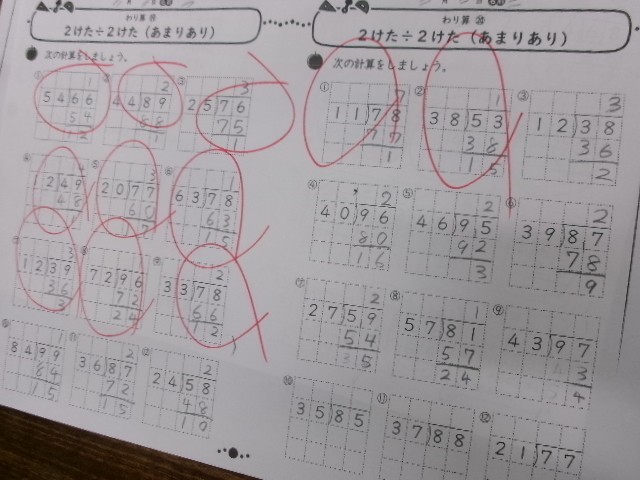 わり算 ⑲
2けた÷2けた（あまりあり）
次の計算をしましょう。
① 1
54)66
54
12
② 2
44)89
88
1
③ 3
25)76
75
1
④ 4
12)49
48
1
⑤ 3
20)77
60
17
⑥ 1
63)78
63
15
⑦ 3
12)39
36
3
⑧
72)96
72
24
⑨ 2
33)78
66
12
⑩ 1
84)99
84
15
⑪ 2
36)87
72
15
⑫ 2
24)58
48
10
わり算 ⑳
2けた÷2けた（あまりあり）
次の計算をしましょう。
① 7
11)78
77
1
② 1
38)53
38
15
③ 3
12)38
36
2
④ 2
40)96
80
16
⑤ 2
46)95
92
3
⑥ 2
39)87
78
9
⑦ 2
27)59
54
5
⑧ 1
57)81
57
24
⑨
43)97
3
4
⑩
35)85
⑪
37)88
⑫
21)77